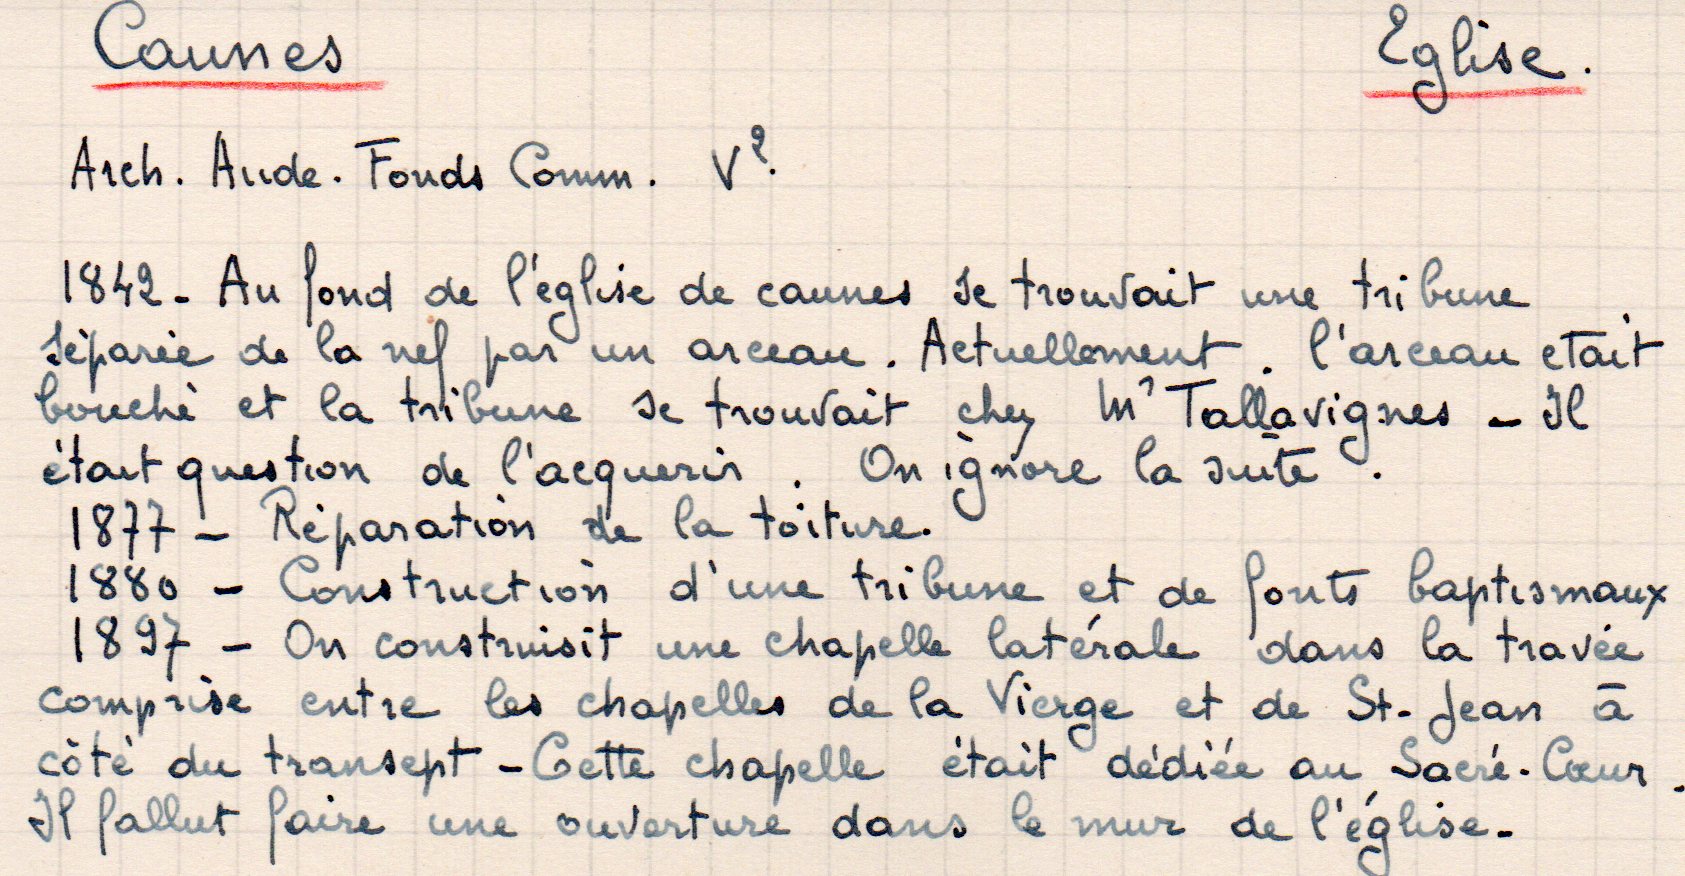 Caunes Eglise.
Arch. Aude. Fonds Comm. V².
1842 - Au fond de l'église de caunes se trouvait une tribune
séparée de la nef par un arceau. Actuellement. l'arceau etait
bouché et la tribune se trouvait chez Mr Tallavignes - Il
était question de l'acquerir. On ignore la suite.
1877 - Réparation de la toiture.
1880 - Construction d'une tribune et de fonts baptismaux
1897 - On construisit une chapelle latérale dans la travée
comprise entre les chapelles de la Vierge et de St-Jean à
côté du transept - Cette chapelle était dédiée au Sacré-Cœur.
Il fallut faire une ouverture dans le mur de l'église-